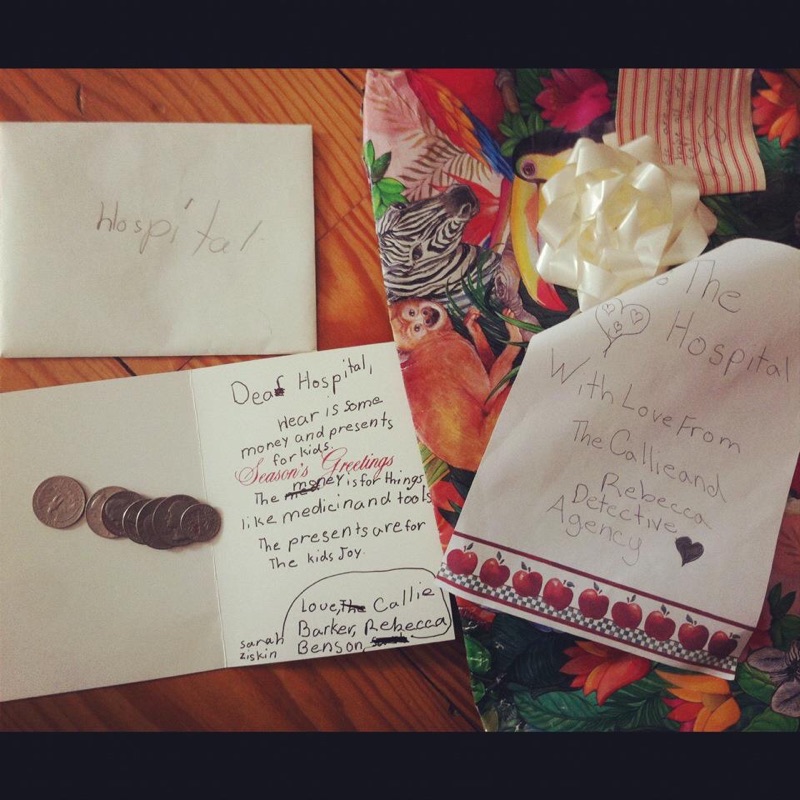 Hospital
Dear Hospital,
Hear is some
money and presents
for kids.
Season's Greetings
The money is for things
like medicin and tools
The presents are for
The kids Joy.
Love, The Callie
Barker, Rebecca
Benson, Sarah
sarah
ziskin
To The
Hospital
With Love From
The Callie and
Rebecca
Detective
Agency